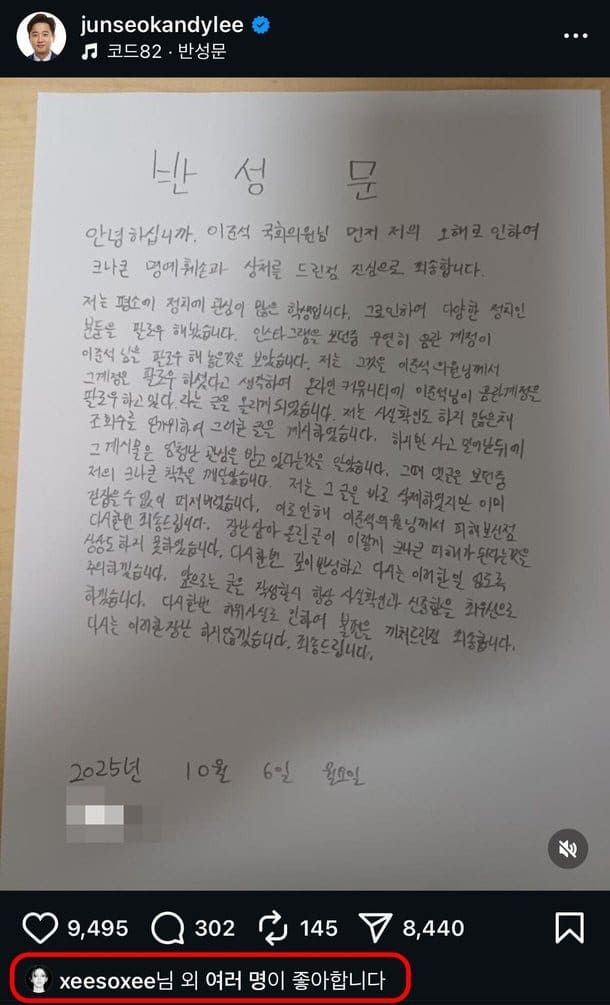 junseokandylee
코드82 · 반성문
반 성 문
안녕하십니까. 이준석 국회의원님 먼저 저의 오해로 인하여
크나큰 명예훼손과 상처를 드린점 진심으로 죄송합니다.
저는 평소에 정치에 관심이 많은 학생입니다. 그로인하여 다양한 정치인
분들을 팔로우 해놨습니다. 인스타그램을 보던중 우연히 음란 계정이
이준석 님을 팔로우 해 놓은것을 보았습니다. 저는 그것을 이준석 의원님께서
그계정은 팔로우 하셨다고 생각하여 온라인 커뮤니티에 이준석님이 음란계정을
팔로우하고 있다. 라는 글을 올리게 되었습니다. 저는 사실확인도 하지 않은채
조회수를 얻기위하여 그러한 글을 게시하였습니다. 하지만 자고 일어난뒤에
그 게시물은 엄청난 관심을 받고 있다는것을 알았습니다. 그때 댓글을 보던중
저의 크나큰 착각을 깨달았습니다. 저는 그 글을 바로 삭제하였지만 이미
걷잡을수 없이 퍼져버렸습니다. 이로인해 이준석의원님께서 피해보신점
다시한번 죄송드립니다. 장난삼아 올린글이 이렇게 크나큰 피해가 된다는것을
상상도 하지 못하였습니다. 다시한번 깊이반성하고 다시는 이러한일 없도록
주의하겠습니다. 앞으로는 글을 작성할시 항상 사실확인과 신중함을 최우선으로
하겠습니다. 다시한번 허위사실로 인하여 불편을 끼쳐드린점 죄송합니다.
다시는 이러한장난 하지않겠습니다. 죄송드립니다.
2025년 10월 6일 월요일
9,495 302 145 8,440
xeesoxee님 외 여러 명이 좋아합니다